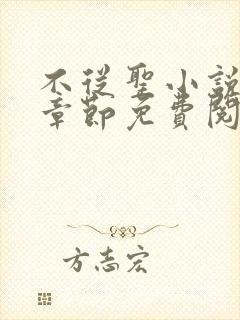 不從聖小說
章節免費閱
方志宏